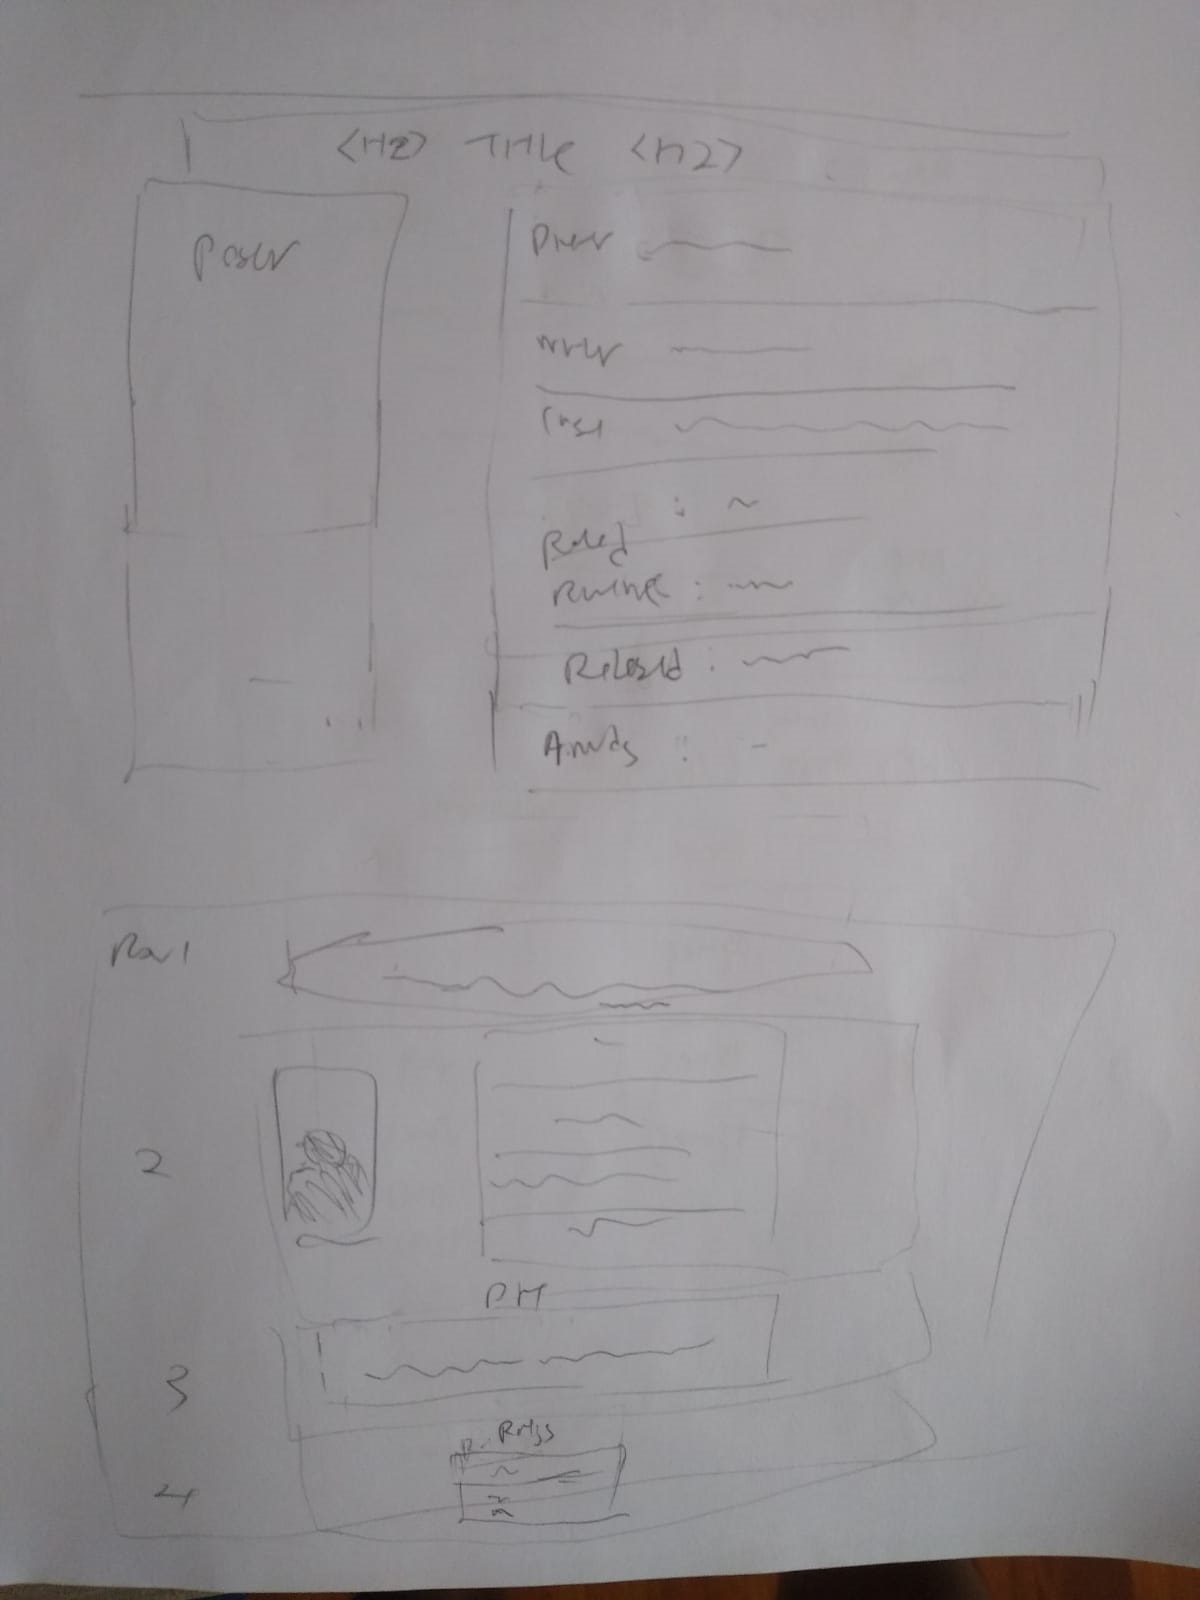 <H2> TITLE <H2>
Poster
Writer
Cast
Rated :
Runtime :
Released :
Awards :
Row 1
2
Plot
3
Ratings
4